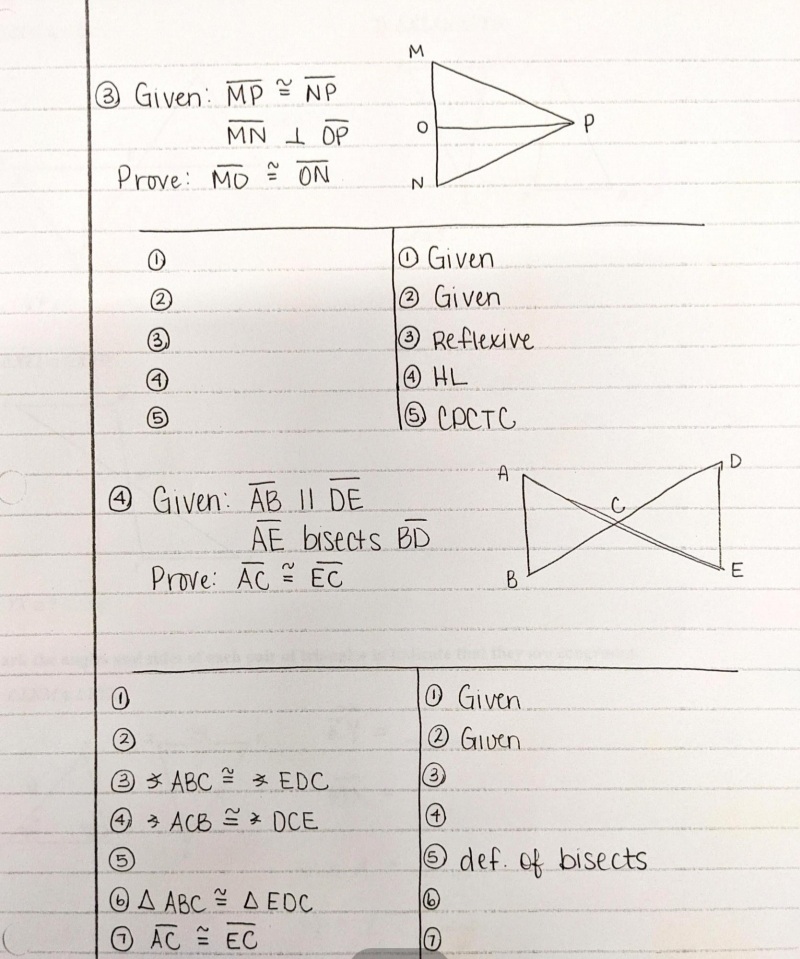 ③ Given: MP ≅ NP
MN ⊥ OP
Prove: MO ≅ ON
M
O
P
N
① ① Given
② ② Given
③ ③ Reflexive
④ ④ HL
⑤ ⑤ CPCTC
④ Given: AB || DE
AE bisects BD
Prove: AC ≅ EC
A
D
C
B
E
① ① Given
② ② Given
③ ∡ ABC ≅ ∡ EDC ③
④ ∡ ACB ≅ ∡ DCE ④
⑤ ⑤ def. of bisects
⑥ Δ ABC ≅ Δ EDC ⑥
⑦ AC ≅ EC ⑦